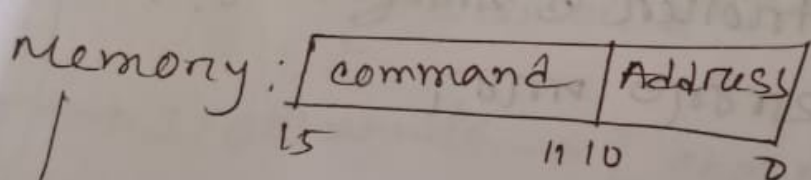 Memory: command Address
15 11 10 0